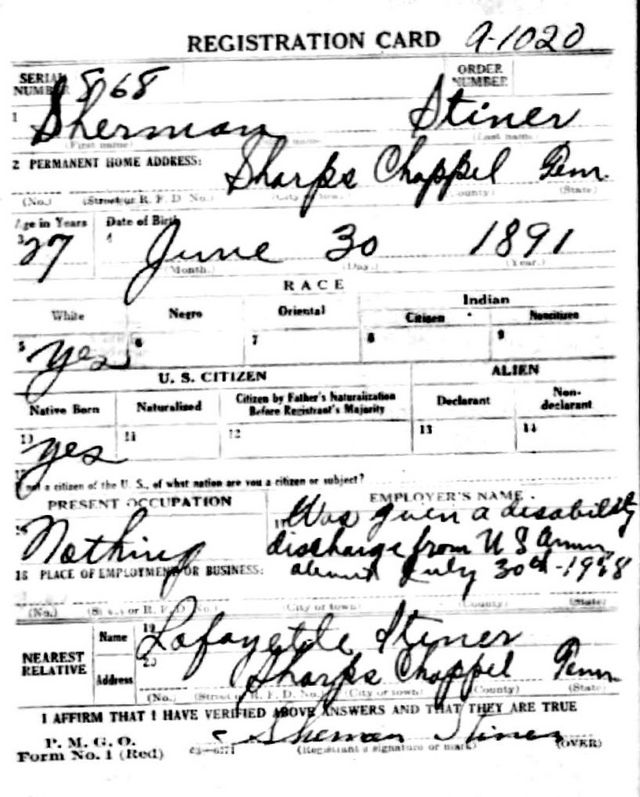 REGISTRATION CARD 9-1020
SERIAL NUMBER 868 ORDER NUMBER
1 Sherman Stiner
(First name) (Last name)
2 PERMANENT HOME ADDRESS: Sharps Chappel Tenn.
(No.) (Street or R. F. D. No.) (City or town) (County) (State)
Age in Years Date of Birth
3 27 4 June 30 1891
(Month.) (Day.) (Year.)
RACE
White Negro Oriental Indian
Citizen Noncitizen
5 Yes 6 7 8 9
U. S. CITIZEN ALIEN
Native Born Naturalized Citizen by Father's Naturalization Before Registrant's Majority Declarant Non-declarant
10 Yes 11 12 13 14
15 not a citizen of the U. S., of what nation are you a citizen or subject?
PRESENT OCCUPATION EMPLOYER'S NAME
16 Nothing Was given a disability
discharge from U S Army
18 PLACE OF EMPLOYMENT OR BUSINESS: July 30th-1918
(No.) (Street or R. F. D. No.) (City or town) (County) (State)
NEAREST RELATIVE Name 19 Lafayette Stiner
Address 20 Sharps Chappel Tenn.
(No.) (Street or R. F. D. No.) (City or town) (County) (State)
I AFFIRM THAT I HAVE VERIFIED ABOVE ANSWERS AND THAT THEY ARE TRUE
P. M. G. O.
Form No. 1 (Red) Sherman Stiner
(Registrant's signature or mark) (OVER)